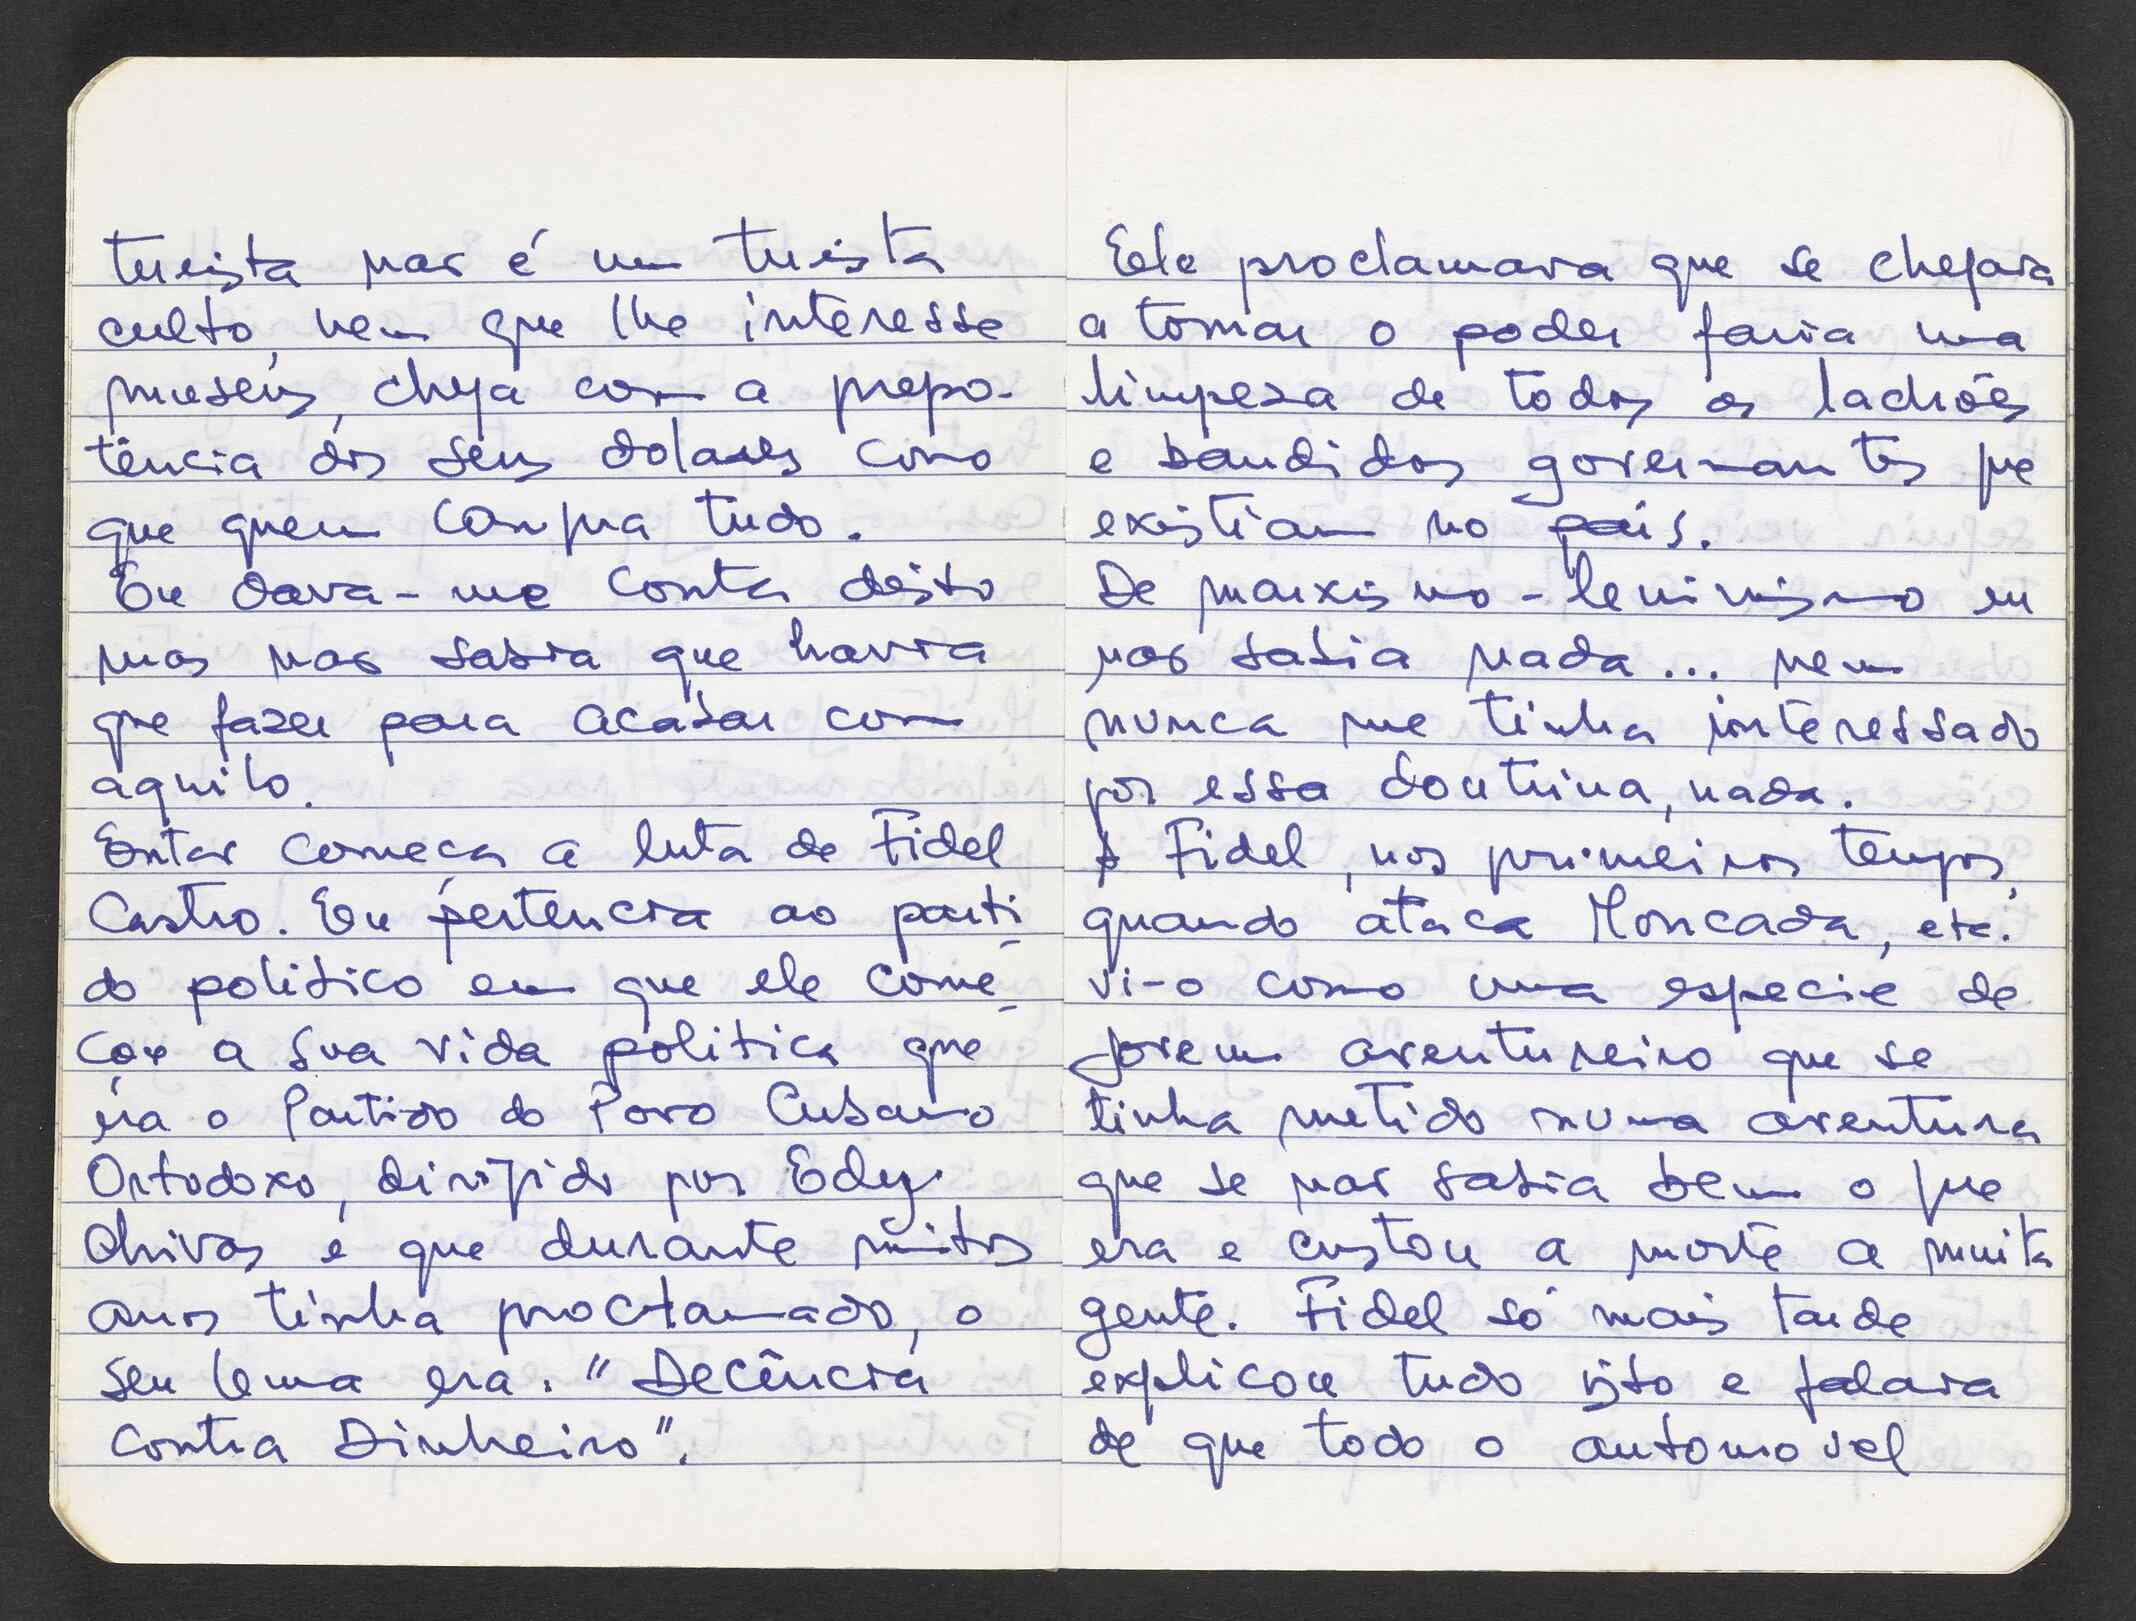 turista não é um turista
culto, nem que lhe interesse
museus, chega com a prepo-
tência dos seus dolares como
que quem compra tudo.
Eu dava-me conta disto
mas não sabia que havia
que fazer para acabar com
aquilo.
Então começa a luta de Fidel
Castro. Eu pertencia ao parti-
do politico em que ele come-
çou a sua vida politica que
era o Partido do Povo Cubano
Ortodoxo, dirigido por Edy
Chivas e que durante muitos
anos tinha proclamado, o
seu lema era. "Decência
contra Dinheiro".
Ele proclamava que se chegara
a tomar o poder faria uma
limpeza de todos os ladrões
e bandidos governantes que
existiam no país.
De marxismo-leninismo eu
não sabia nada... nem
nunca me tinha interessado
por essa doutrina, nada.
A Fidel, nos primeiros tempos,
quando ataca Moncada, etc.
vi-o como uma especie de
jovem aventureiro que se
tinha metido numa aventura
que se não sabia bem o que
era e custou a morte a muita
gente. Fidel só mais tarde
explicou tudo isto e falava
de que todo o automovel